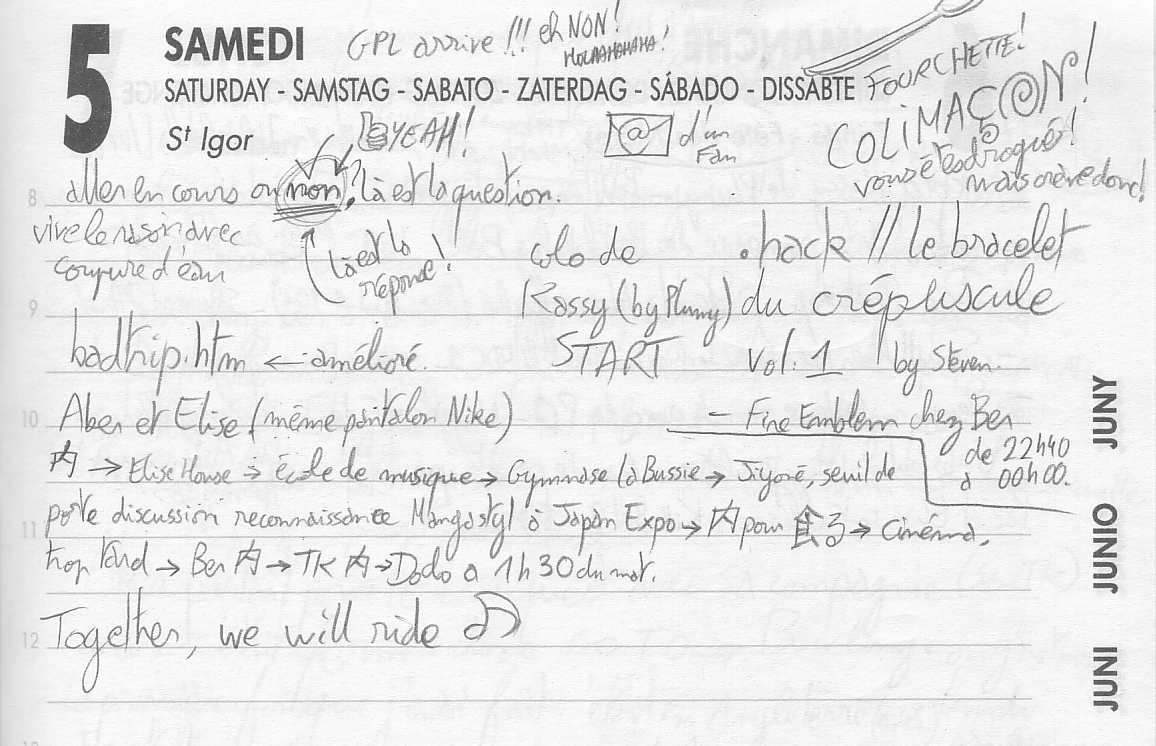 5 SAMEDI GPL arrive !!! eh NON!
SATURDAY - SAMSTAG - SABATO - ZATERDAG - SÁBADO - DISSABTE
FOURCHETTE!
St Igor
YEAH!
@ d'un
Fan
COLIMAÇ@N!
vous êtes drogué!
mais crève donc!
8 aller en cours ou non? là est la question.
là est la
réponse!
vive le rasoir avec
coupure d'eau
colo de
Rossy (by Plumy)
START
.hack // le bracelet
du crépuscule
Vol. 1 by Steven.
9
badtrip.htm ← amélioré.
10 Aber et Elise (même pantalon Nike)
- Fire Emblem chez Ber
de 22h40
à 00h00.
内 → Elise House → école de musique → Gymnase la Bussie → Jiyoré, seuil de
11 porte discussion reconnaissance Mangastyl à Japan Expo → 内 pour 食る → Cinéma,
trop tard → Ber 内 → TK 内 → Dodo à 1h30 du mat.
12 Together, we will ride ♫
JUNI JUNIO JUNY